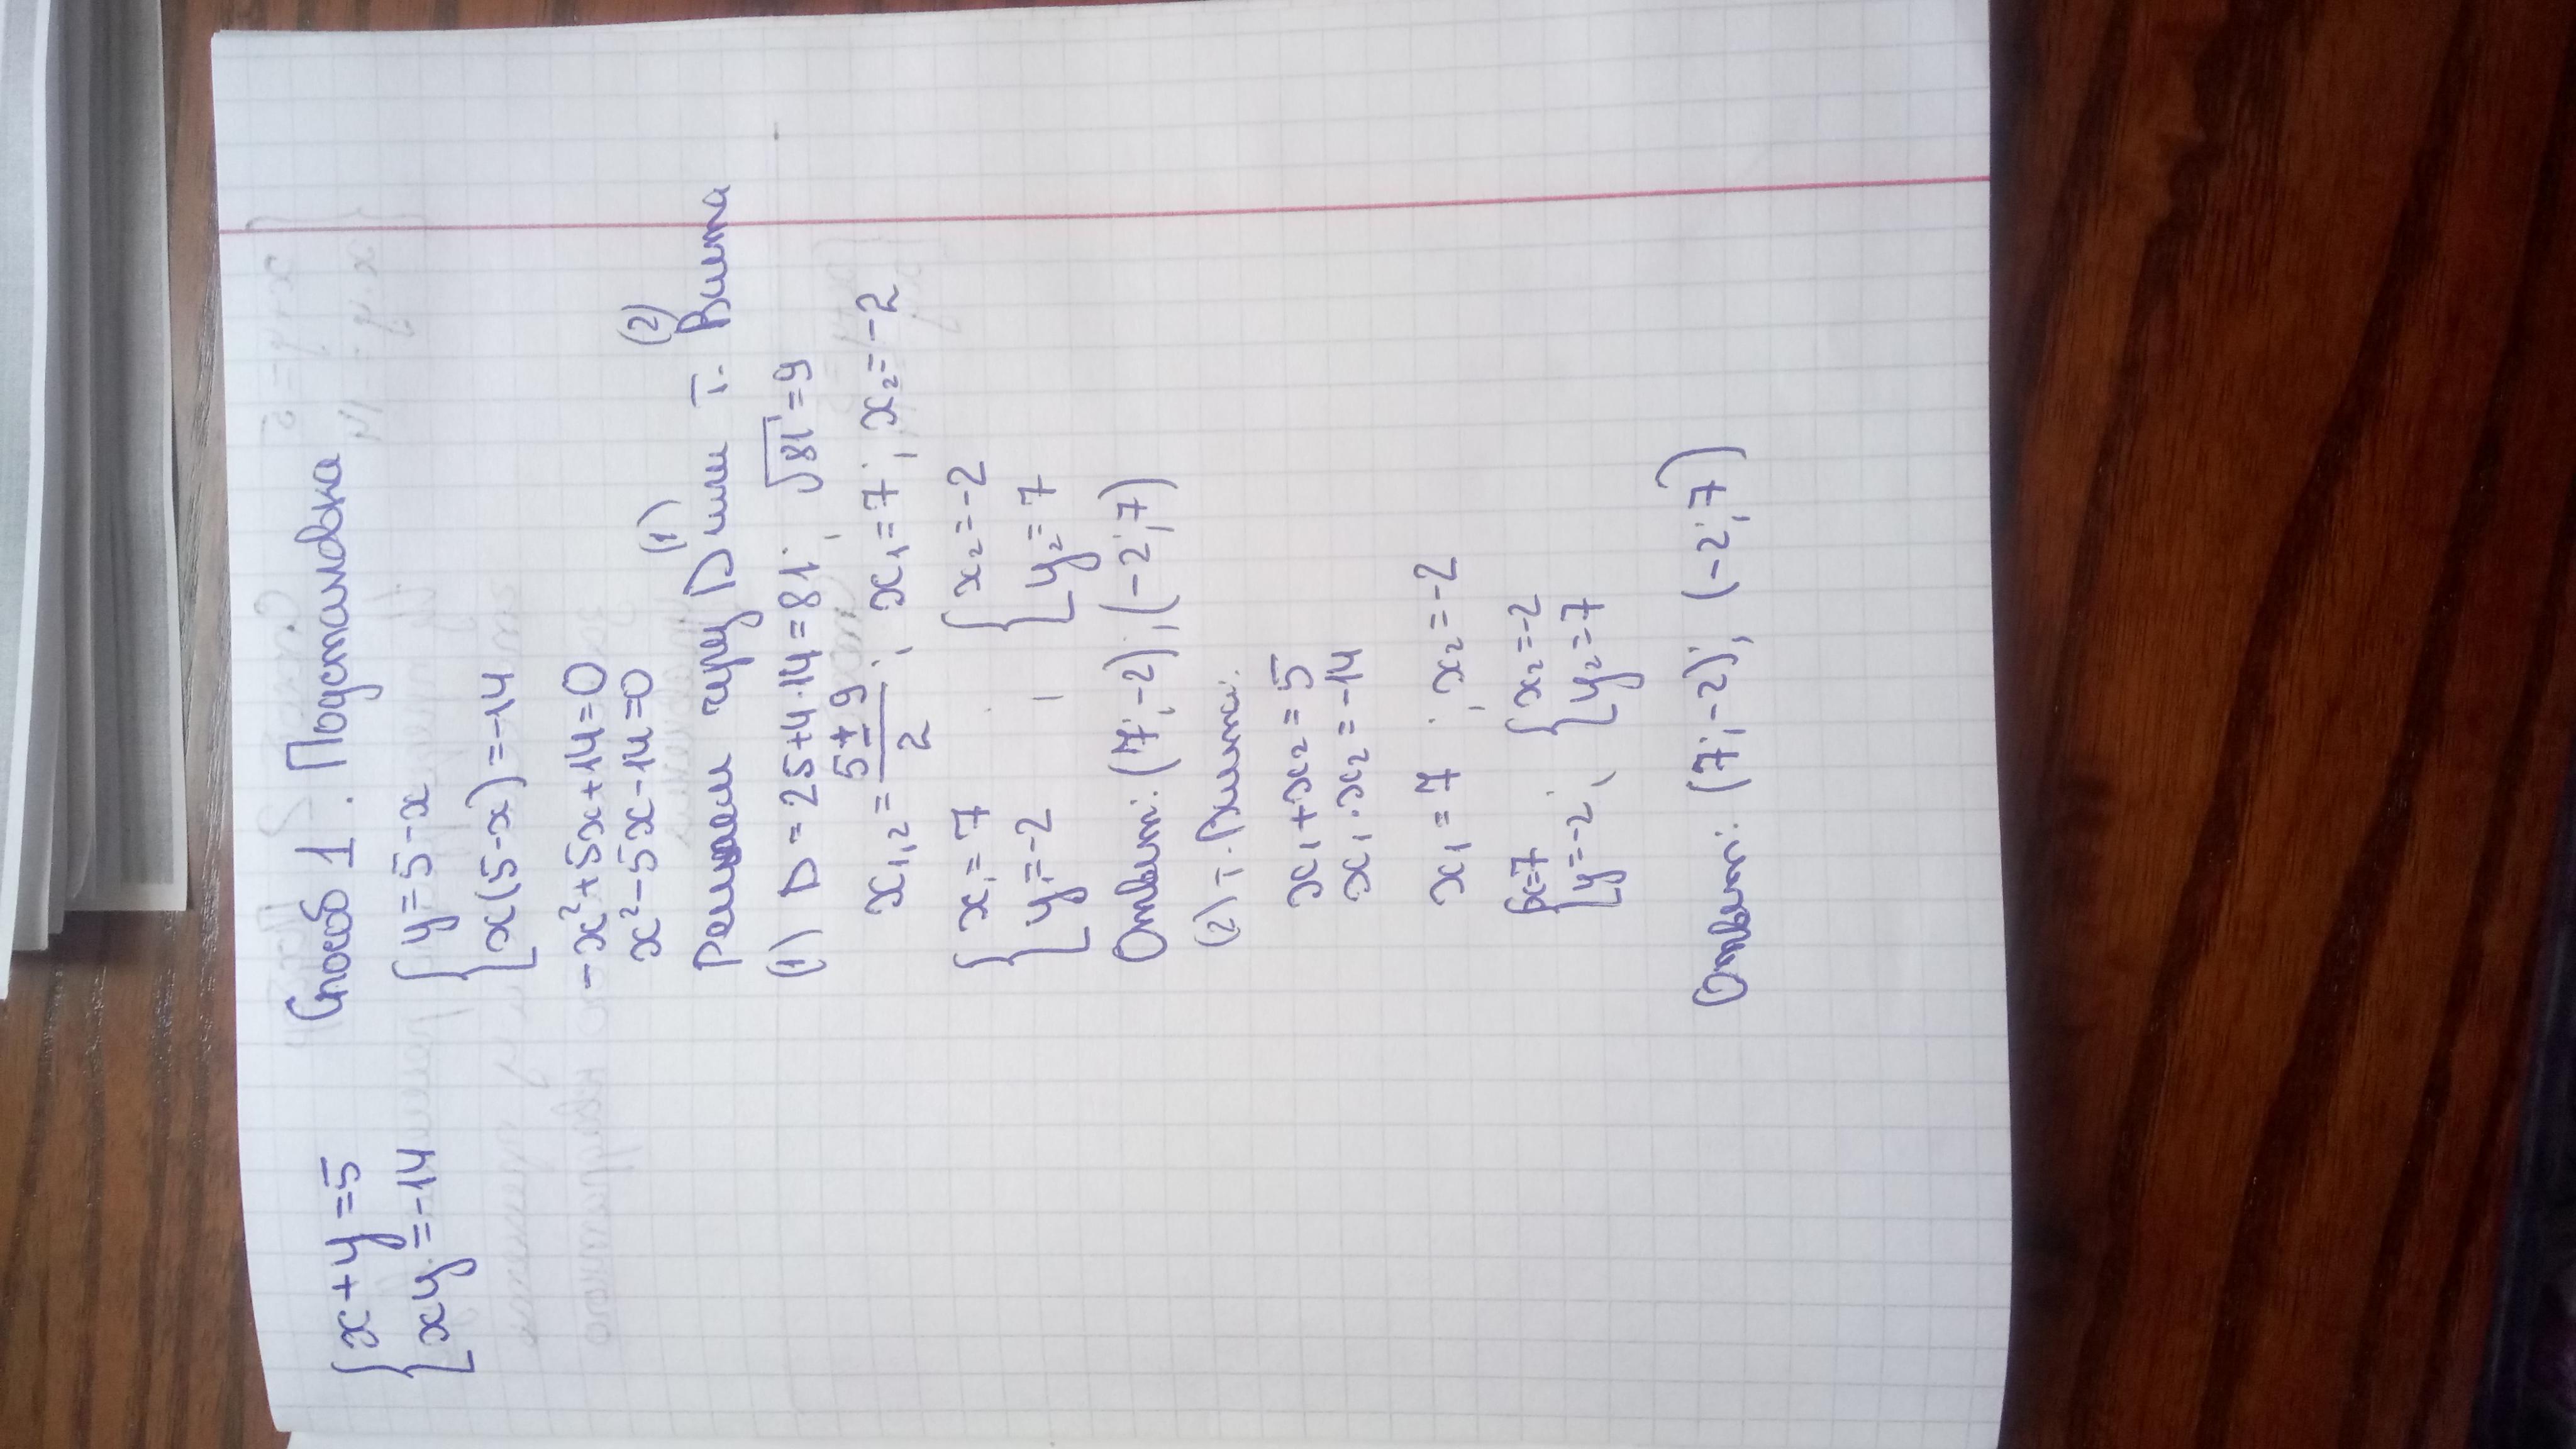 { x + y = 5
{ xy = -14
Способ 1. Подстановка
{ y = 5 - x
{ x(5-x) = -14
-x² + 5x + 14 = 0
x² - 5x - 14 = 0
(1) (2)
Решаем через D или т. Виета
(1) D = 25 + 4·14 = 81; √81 = 9
x₁,₂ = (5 ± 9)/2; x₁ = 7; x₂ = -2
{ x₁ = 7 { x₂ = -2
{ y₁ = -2 ; { y₂ = 7
Ответ: (7; -2); (-2; 7)
(2) т. Виета:
x₁ + x₂ = 5
x₁ · x₂ = -14
x₁ = 7 ; x₂ = -2
{ x = 7 { x₂ = -2
{ y = -2 ; { y₂ = 7
Ответ: (7; -2); (-2; 7)